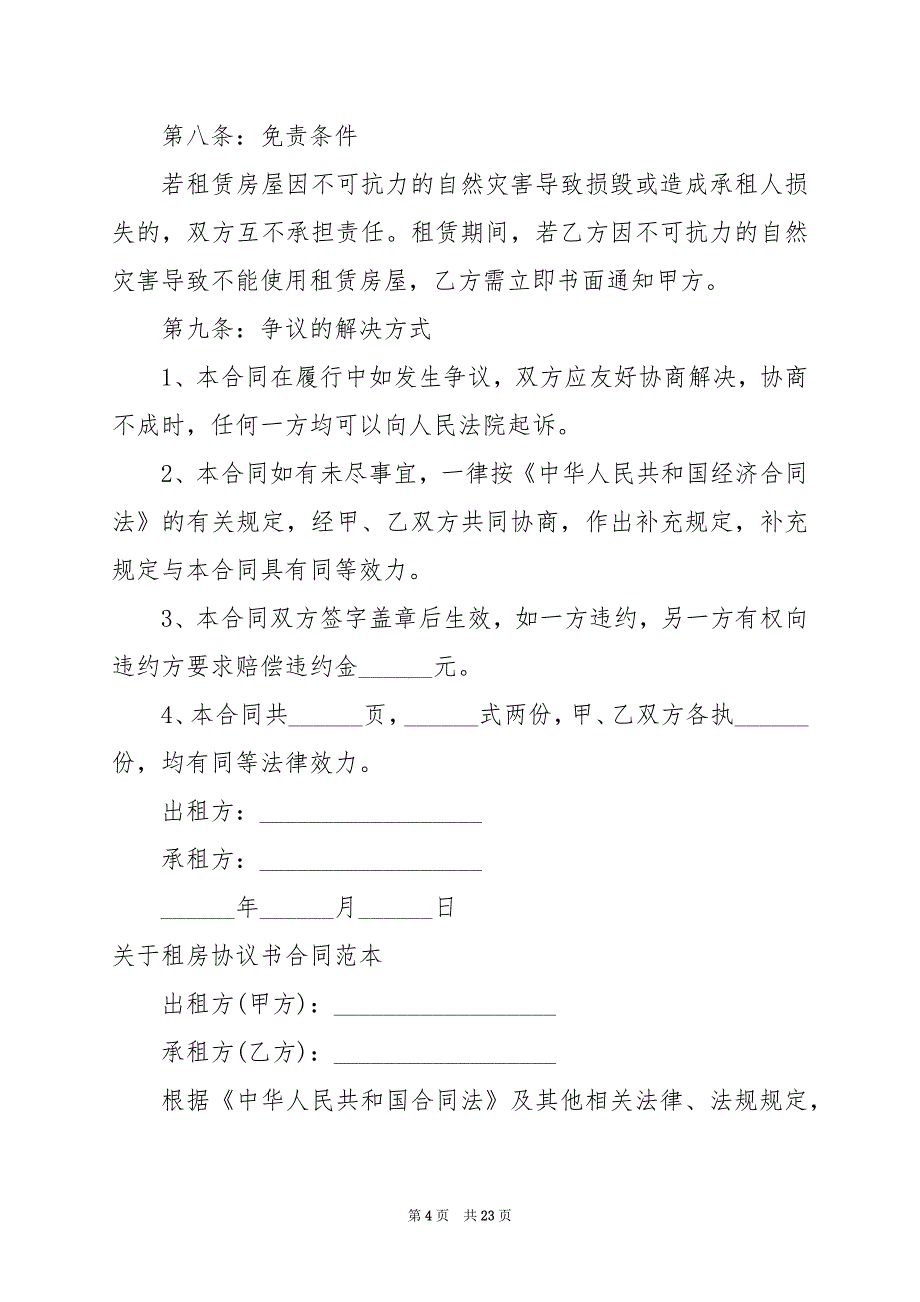 第八条：免责条件
若租赁房屋因不可抗力的自然灾害导致损毁或造成承租人损
失的，双方互不承担责任。租赁期间，若乙方因不可抗力的自然
灾害导致不能使用租赁房屋，乙方需立即书面通知甲方。
第九条：争议的解决方式
1、本合同在履行中如发生争议，双方应友好协商解决，协商
不成时，任何一方均可以向人民法院起诉。
2、本合同如有未尽事宜，一律按《中华人民共和国经济合同
法》的有关规定，经甲、乙双方共同协商，作出补充规定，补充
规定与本合同具有同等效力。
3、本合同双方签字盖章后生效，如一方违约，另一方有权向
违约方要求赔偿违约金______元。
4、本合同共______页，______式两份，甲、乙双方各执______
份，均有同等法律效力。
出租方：__________________
承租方：__________________
______年______月______日
关于租房协议书合同范本
出租方(甲方)：__________________
承租方(乙方)：__________________
根据《中华人民共和国合同法》及其他相关法律、法规规定，
第 4 页 共 23 页